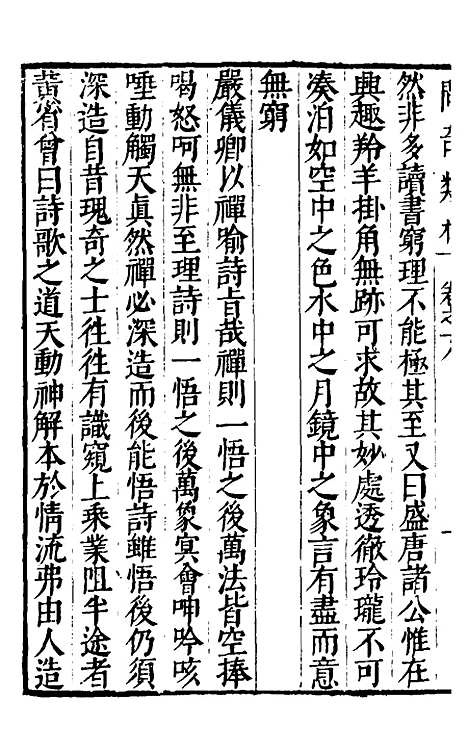 然非多讀書窮理不能極其至又曰盛唐諸公惟在
興趣羚羊掛角無跡可求故其妙處透徹玲瓏不可
凑泊如空中之色水中之月鏡中之象言有盡而意
無窮
嚴儀卿以禪喻詩旨哉禪則一悟之後萬法皆空捧
喝怒呵無非至理詩則一悟之後萬象冥會呻吟咳
唾動觸天眞然禪必深造而後能悟詩雖悟後仍須
深造自昔瑰奇之士徃徃有識窺上乘業阻半途者
黄省曾曰詩歌之道天動神解本於情流弗由人造